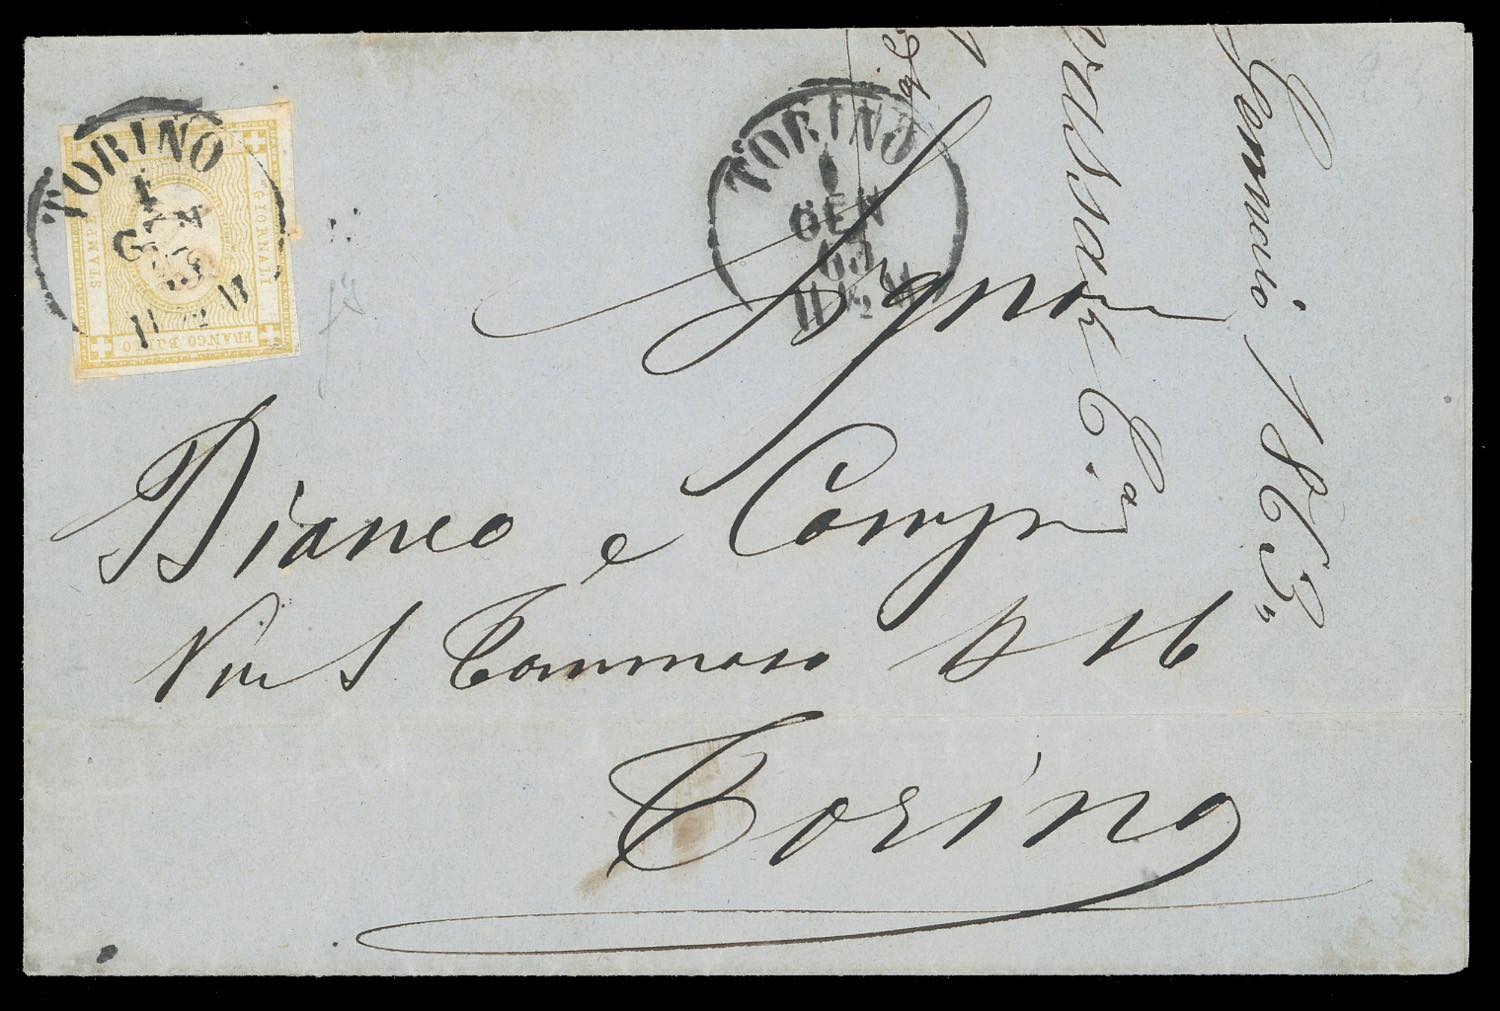 TORINO
1
GEN
63
11 ½ M
FRANCO BOLLO
GIORNALI
STAMPE
TORINO
1
GEN
63
11 ½ M
Signori
Bianco e Comp.
Via S Tommaso N 16
Torino
Gennaio 1863